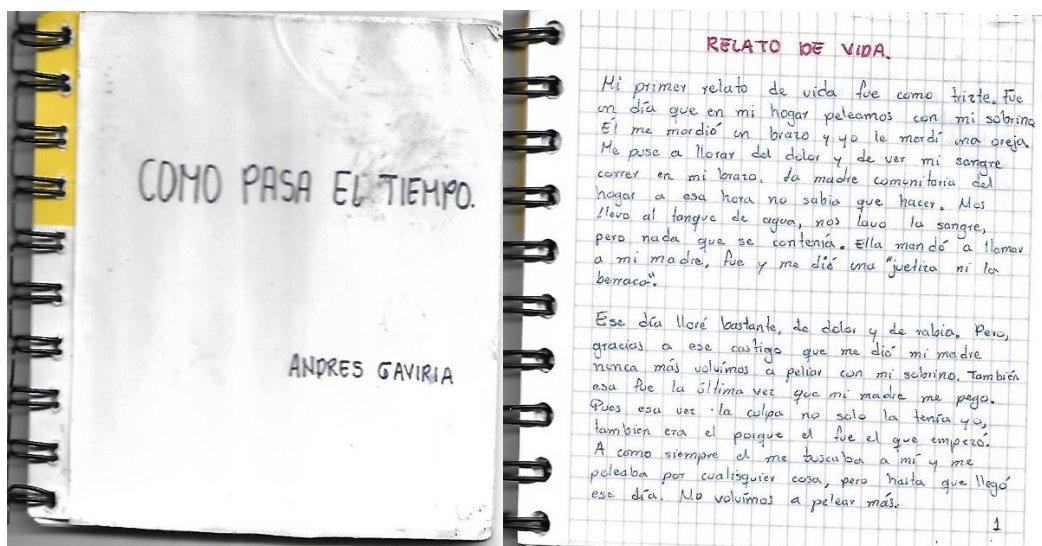 COMO PASA EL TIEMPO.
ANDRES GAVIRIA
RELATO DE VIDA.
Mi primer relato de vida fue como trizte. Fue
un día que en mi hogar peleamos con mi sobrino
Él me mordió un brazo y yo le mordí una oreja
Me puse a llorar del dolor y de ver mi sangre
correr en mi brazo. La madre comunitaria del
hogar a esa hora no sabia que hacer. Nos
llevo al tanque de agua, nos lavo la sangre,
pero nada que se contenía. Ella mandó a llamar
a mi madre, fue y me dió una "juetiza ni la
berraca".
Ese día lloré bastante, de dolor y de rabia. Pero,
gracias a ese castigo que me dió mi madre
nunca más volvimos a peliar con mi sobrino. También
esa fue la última vez que mi madre me pego.
Pues esa vez la culpa no solo la tenía yo,
tambien era el porque el fue el que empezó.
A como siempre el me buscaba a mí y me
peleaba por cualisquier cosa, pero hasta que llegó
ese día. No volvimos a pelear más.
1